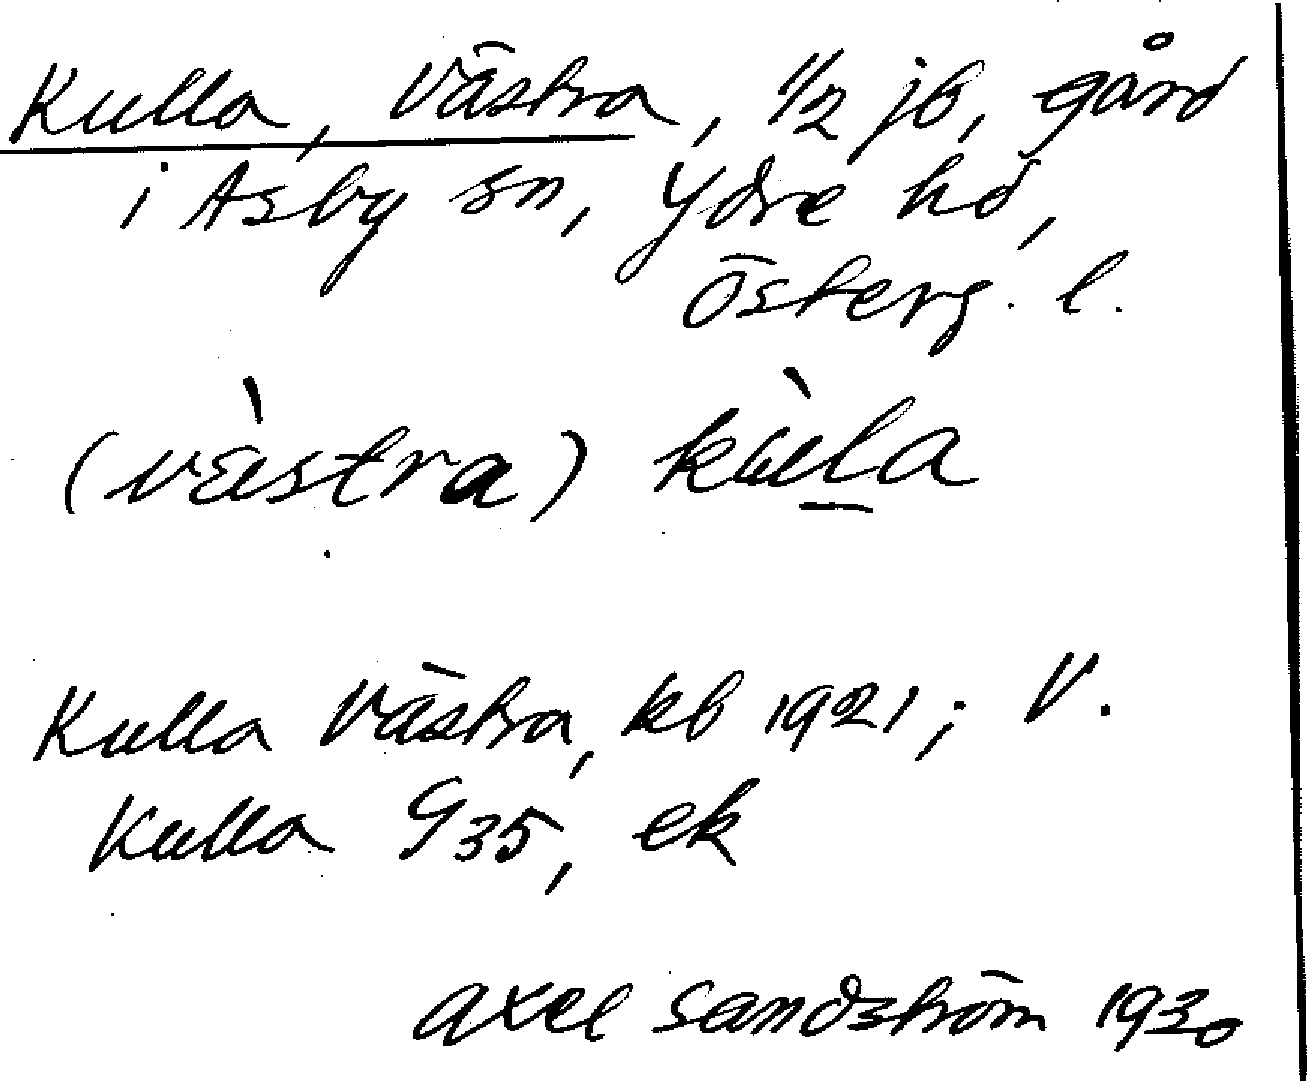 Kulla, Västra, 1/2 jb, gård
i Asby sn, Ydre hd,
Österg. l.
(västra) kùla
Kulla Västra, kb 1921; V.
Kulla G35, ek
Axel Sandström 1930